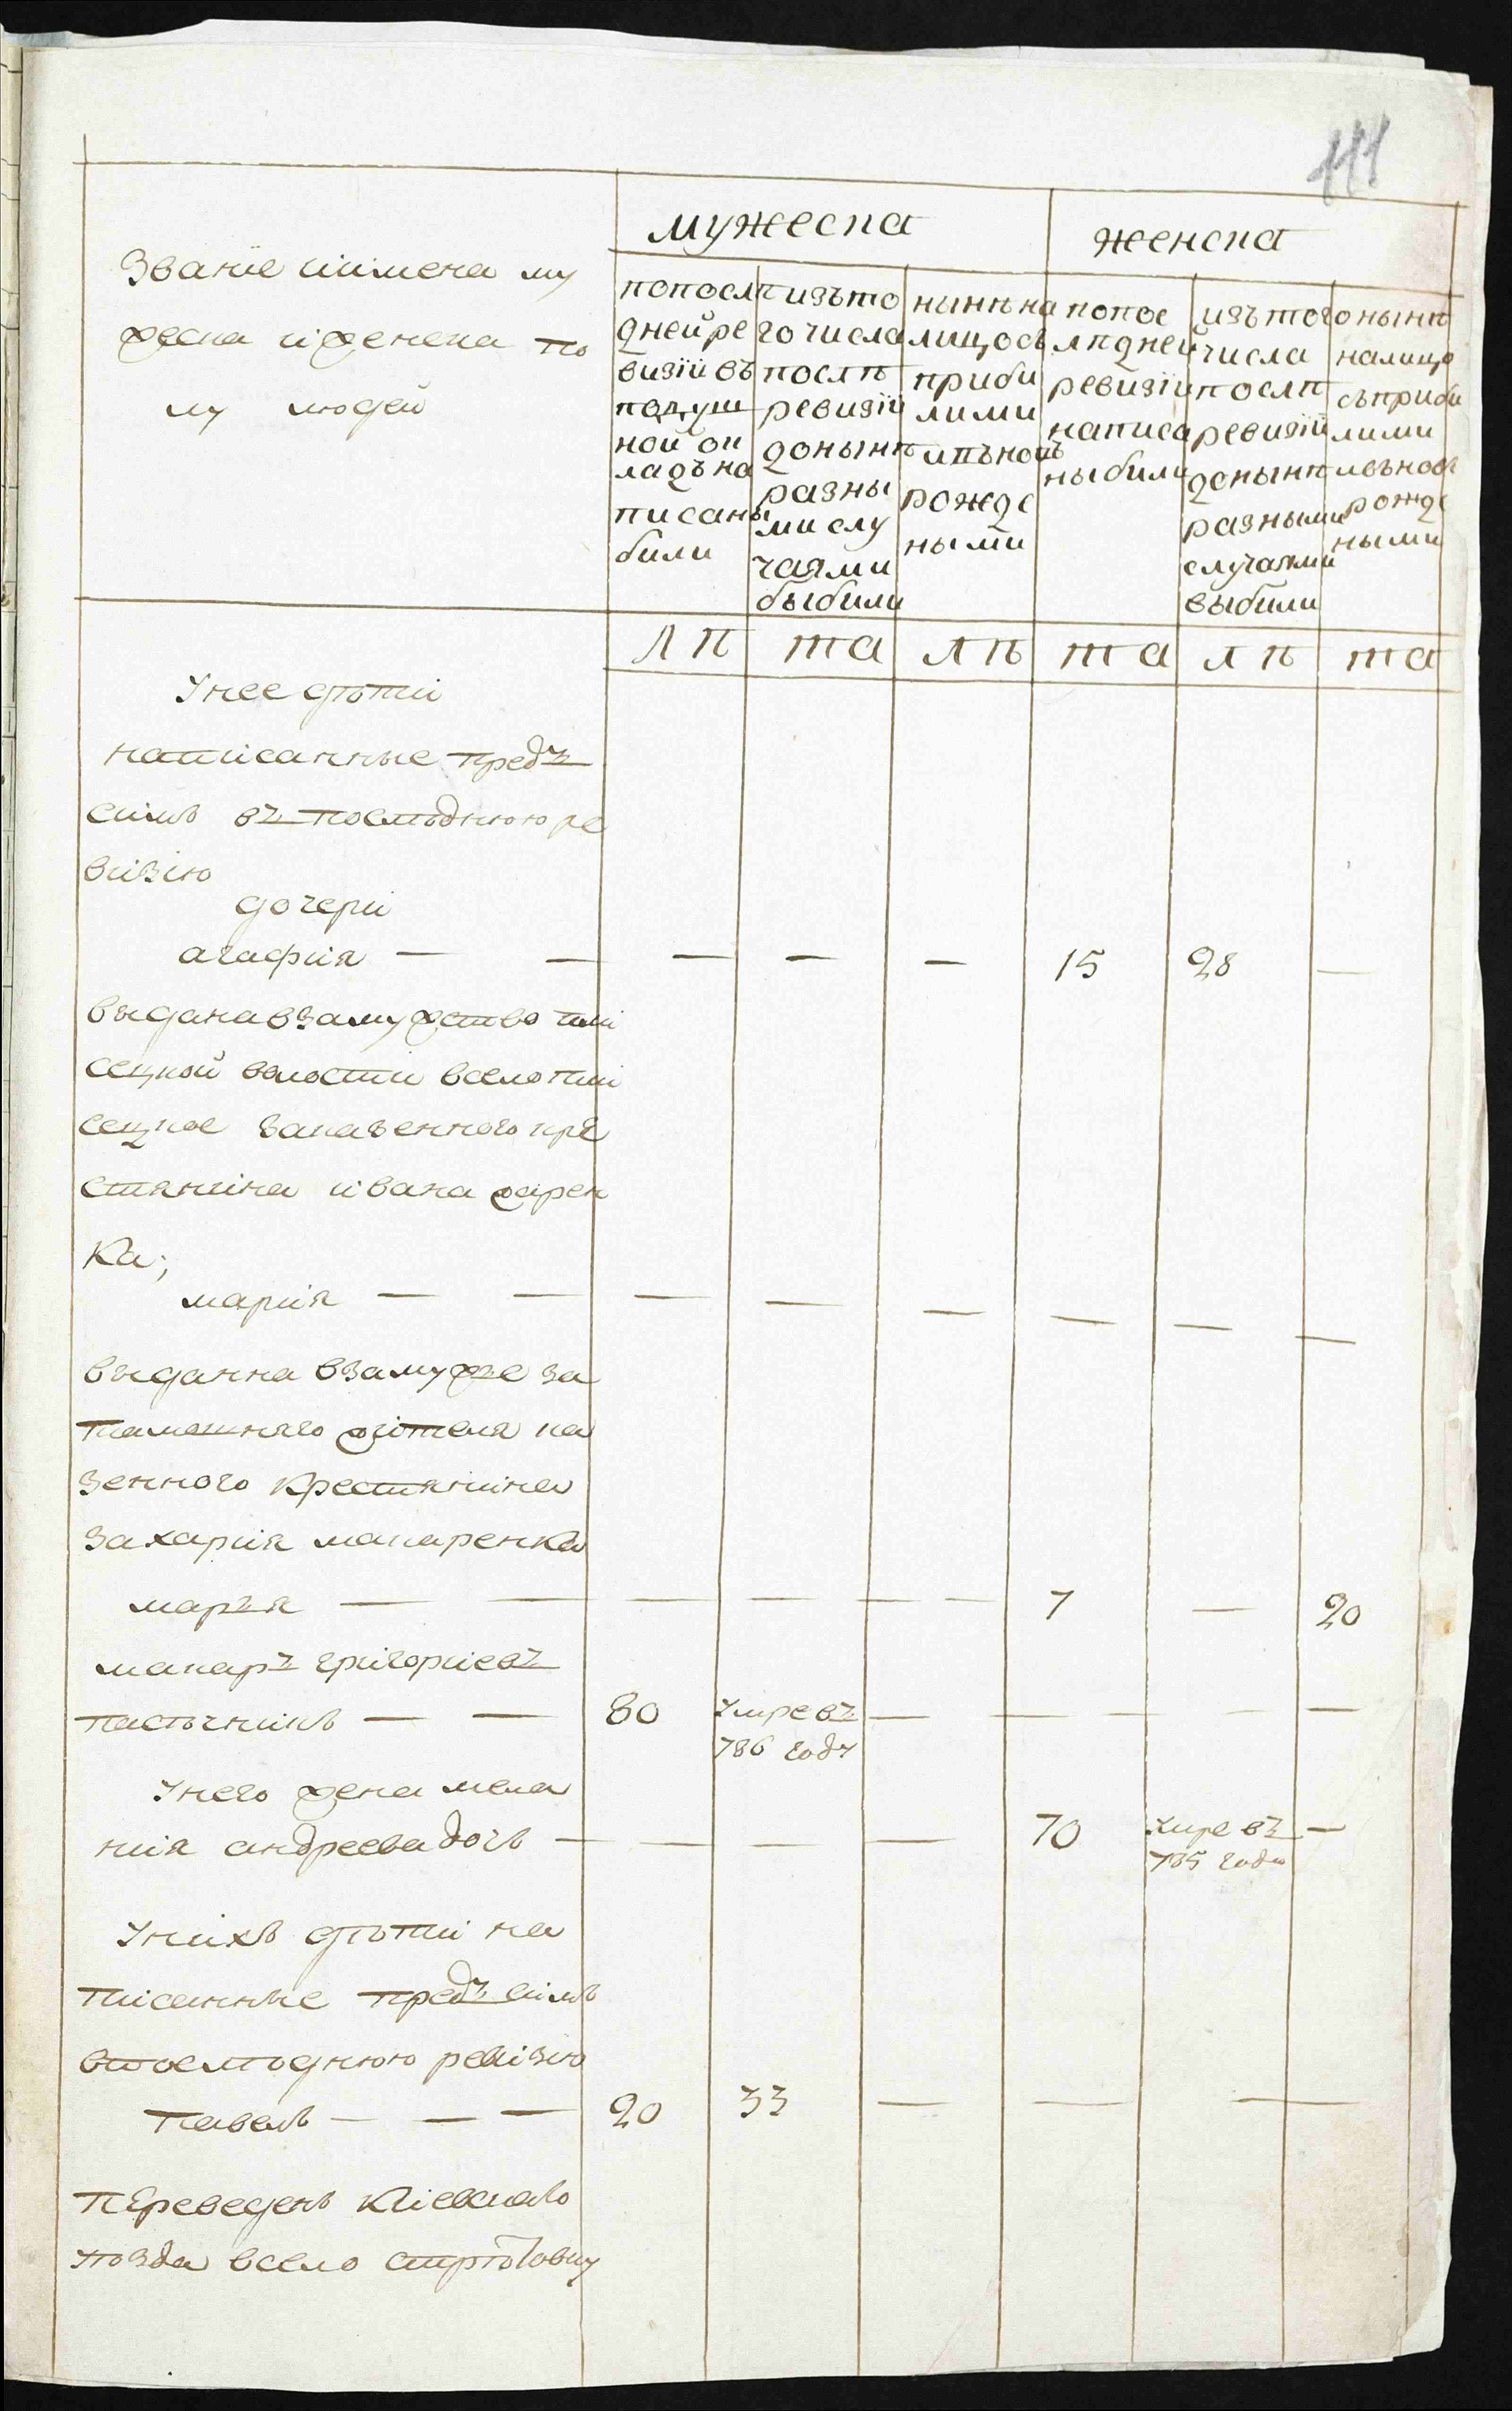 111
Званїе иимена му
жеска иженска по
лу людей
мужеска
женска
попослѣ
дней ре
визїи въ
подуш
ной ок
ладъ на
писаны
били
изъто
го числа
послѣ
ревизїи
донынѣ
разны
ми слу
чаями
выбили
нынѣ на
лицо съ
приби
лими
ивъновь
рожде
ными
попос
лѣдней
ревизїи
написа
ны били
изътого
числа
послѣ
ревизїи
донынѣ
разными
случаями
выбили
нынѣ
налицо
съприби
лими
ивъновь
рожде
ными
лѣ та лѣ та лѣ та
Унее дѣти
написанные предъ
симъ въ последнюю ре
визїю
дочери
агафия — — — — — 15 28 —
выдана взамужство пли
сецкой волости вселопли
сецкое заказенного кре
стянина ивана
ка;
мария — — — — — — — —
выданна взамуже за
тамошняго жителя ка
зенного крестянина
захария макаренка
марья — — — — — — 7 — 20
макаръ григориевъ
пасѣчникъ — — 80 умре въ — — — — —
786 году
Унего жена мела
ния андреева дочь — — — — 70 умре въ —
785 году
Унихъ дѣти на
писанные предъ симъ
впослѣднюю ревизию
павелъ — — — 20 33 — — — —
переведенъ киевскаго
уѣзда всело